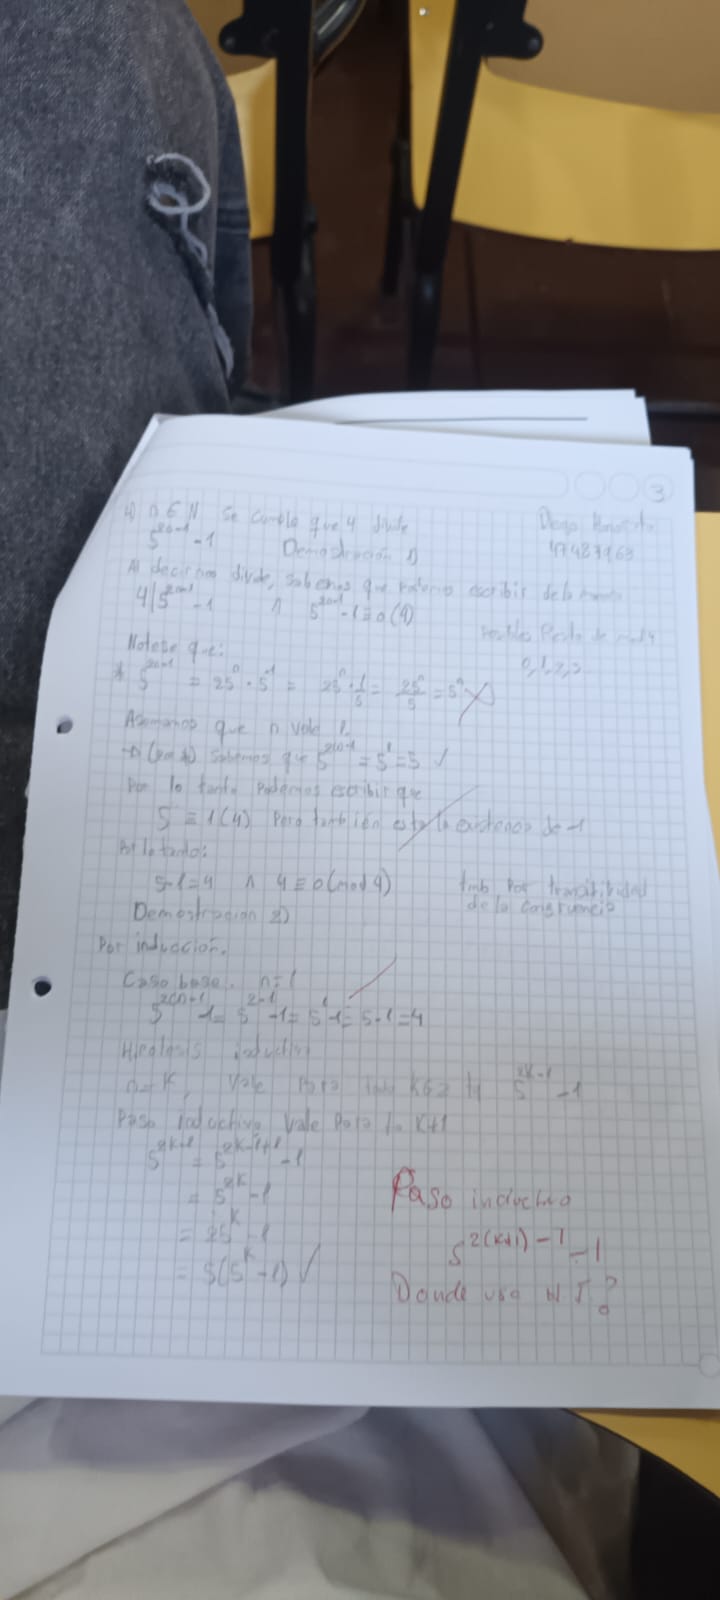 3
4) n ∈ N se cumple que 4 divide
5^{2n-1} - 1
Demostración 1)
Al decirnos divide, sabemos que podemos escribir de la
4|5^{2n-1} - 1 ∧ 5^{2n-1} - 1 ≡ 0 (4)
Posibles Resto de mod 4
0, 1, 2, 3
Notese que:
* 5^{2n-1} = 25^n · 5^{-1} = 25^n · 1/5 = 25^n/5 = 5^n
Asumamos que n vale 1
sabemos que 5^{2(1)-1} = 5^1 = 5 ✓
Por lo tanto podemos escribir que
5 ≡ 1 (4) Pero también esta la existencia de -1
Por lo tanto:
5-1=4 ∧ 4 ≡ 0 (mod 4)
tmb por transitividad
de la congruencia
Demostración 2)
Por inducción.
Caso base. n=1
5^{2(1)-1} - 1 = 5^{2-1} - 1 = 5^1 - 1 = 5-1 = 4
Hipotesis inductiva
n=K, Vale Para 5^{2K-1} - 1
Paso inductivo Vale Para K+1
5^{2K+1} = 5^{2K-1+1} - 1
= 5^{2K} - 1
= 25^K - 1
= 5(5^K - 1) ✓
Paso inductivo
5^{2(K+1)-1} - 1
Donde uso HI?